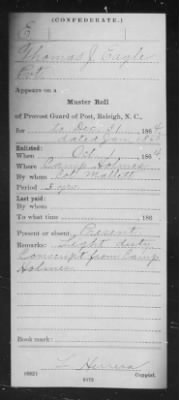 (CONFEDERATE.)
E
Thomas J. Eagle
Pvt
Appears on a
Master Roll
of Provost Guard of Post, Raleigh, N. C.,
for to Dec 31, 186 4.
dated Jan 1865
Enlisted:
When Oct, 186 4.
Where Camp Holmes
By whom Col Mallett
Period 3 yrs
Last paid:
By whom
To what time , 186 .
Present or absent, Present
Remarks: Light duty
Conscript from Camp
Holmes
Book mark:
Copyist.